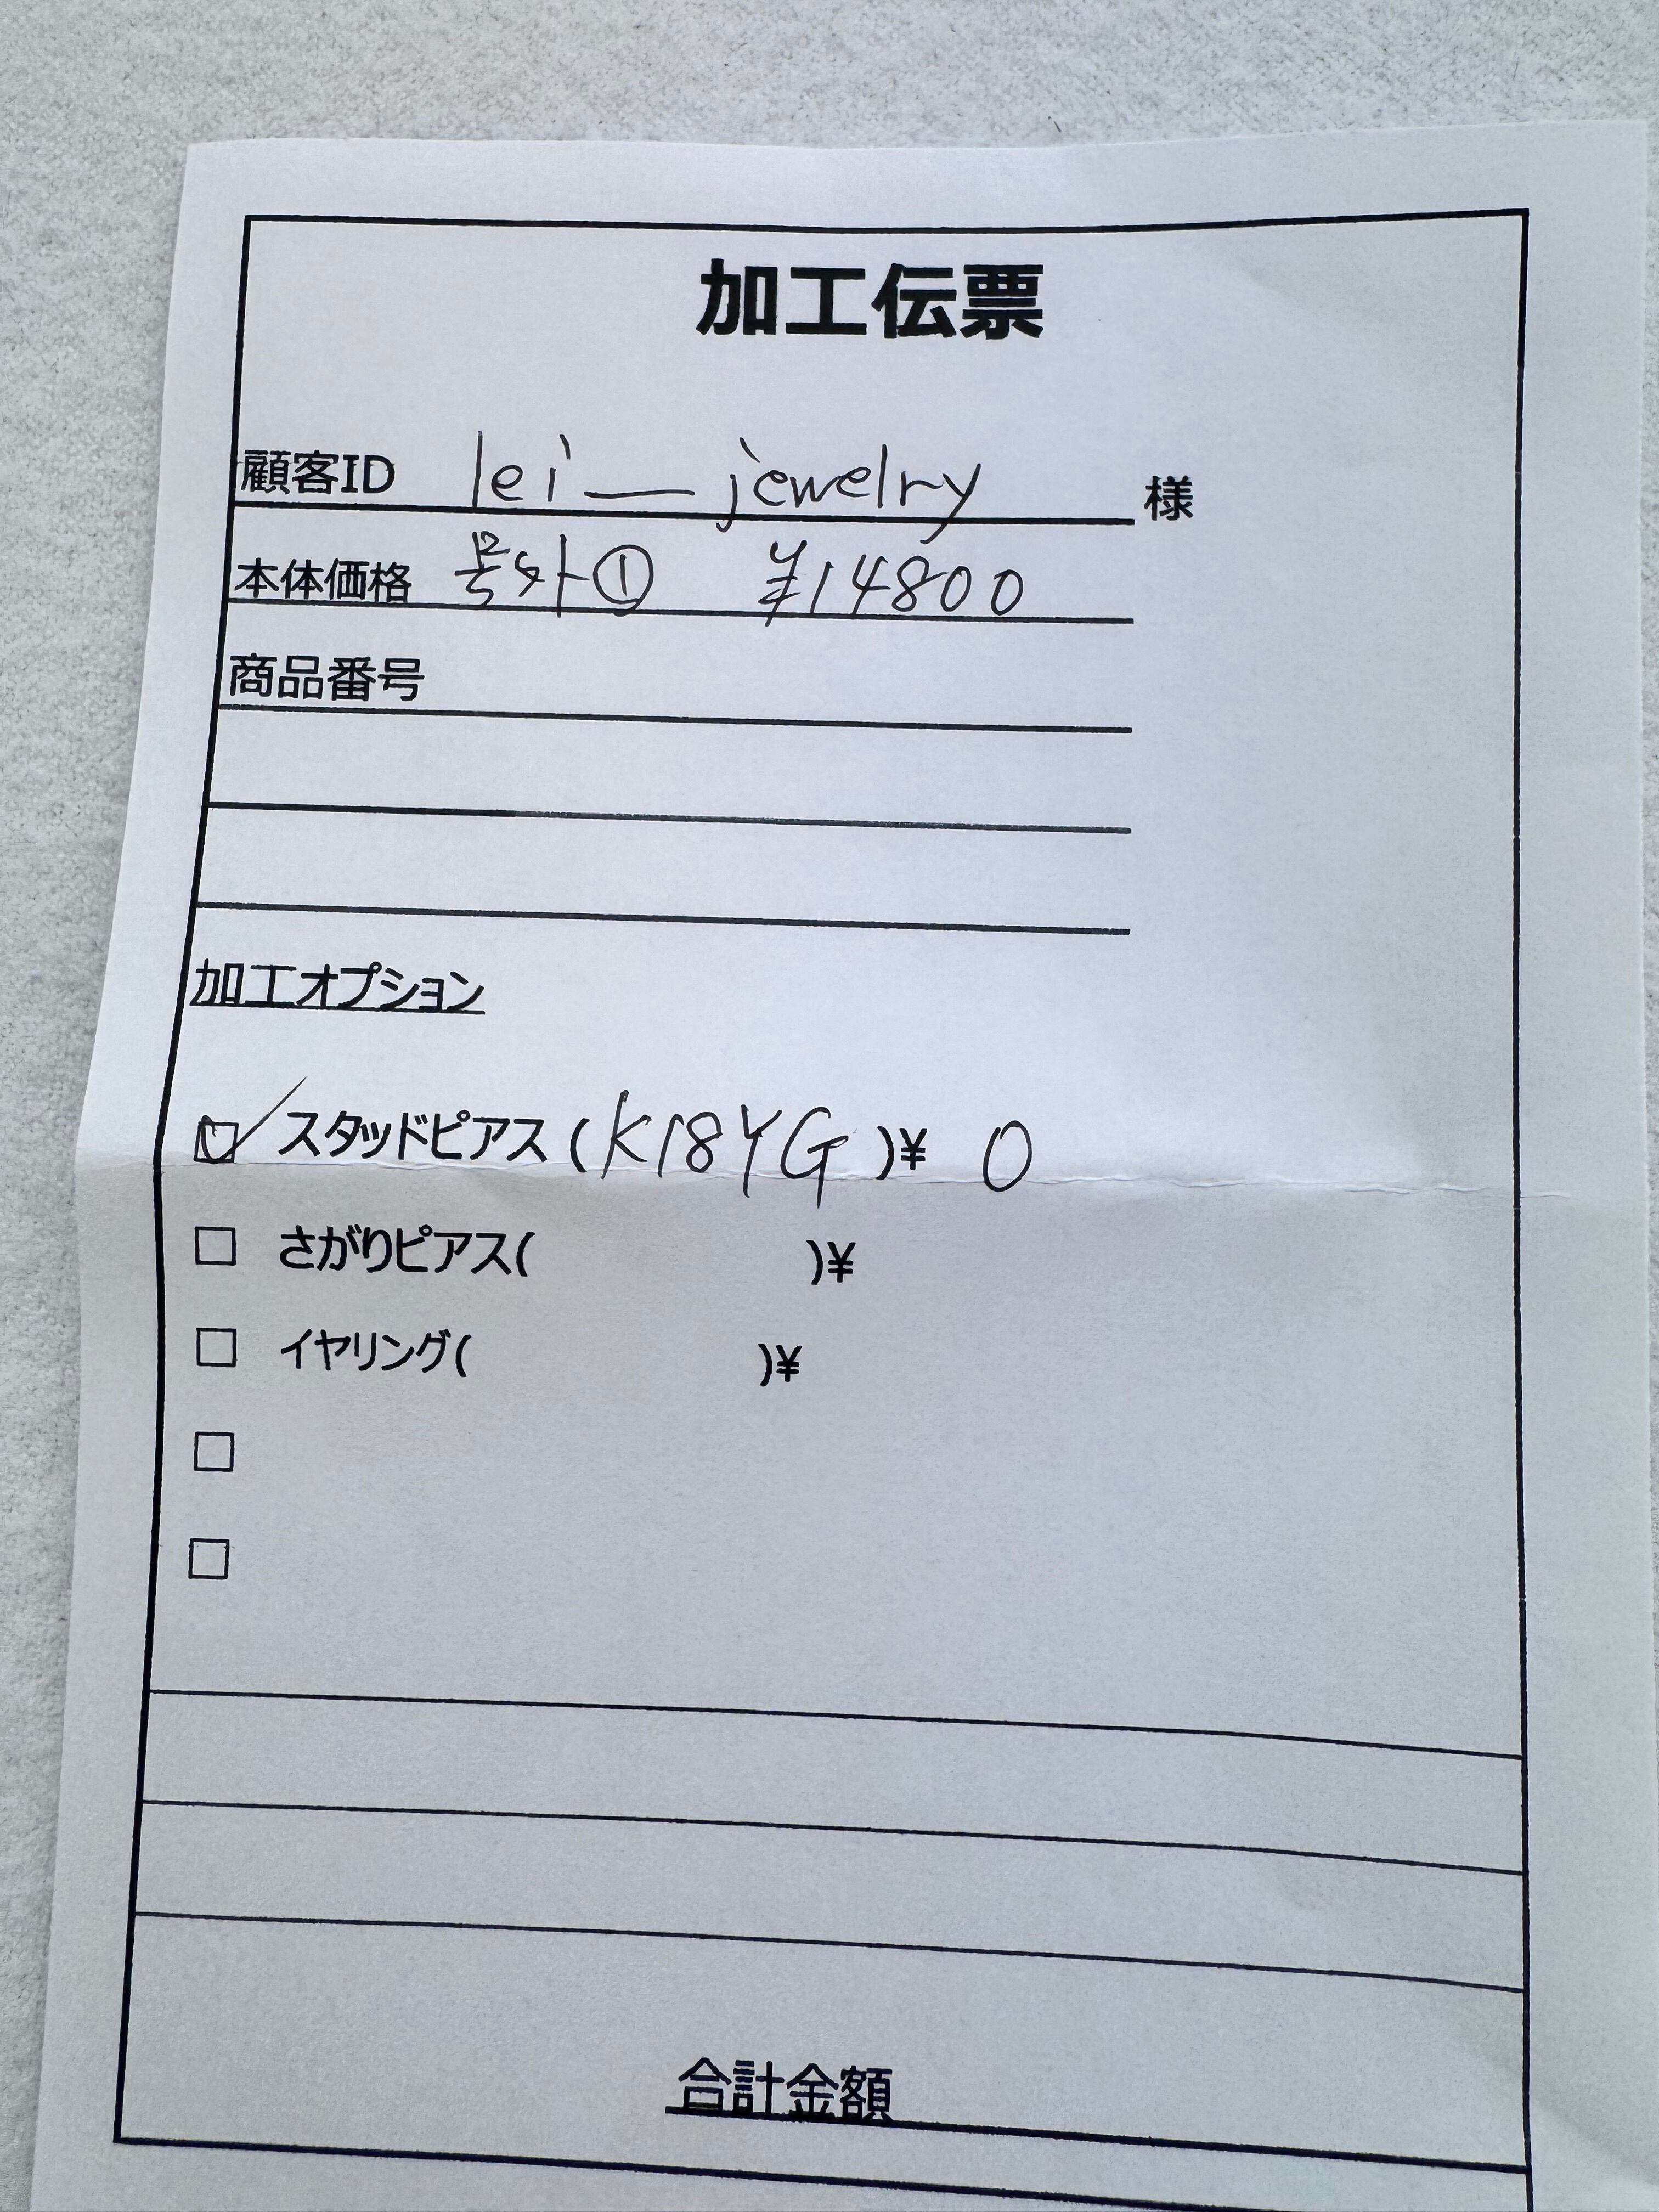 加工伝票
顧客ID lei__jewelry 様
本体価格 号外① ¥14800
商品番号
加工オプション
☑ スタッドピアス (K18YG)¥ 0
☐ さがりピアス( )¥
☐ イヤリング( )¥
☐
☐
合計金額